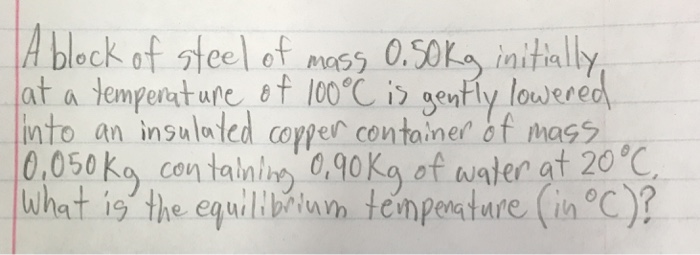 A block of steel of mass 0.50Kg initially
at a temperature of 100°C is gently lowered
into an insulated copper container of mass
0.050Kg containing 0.90Kg of water at 20°C.
What is the equilibrium temperature (in °C)?